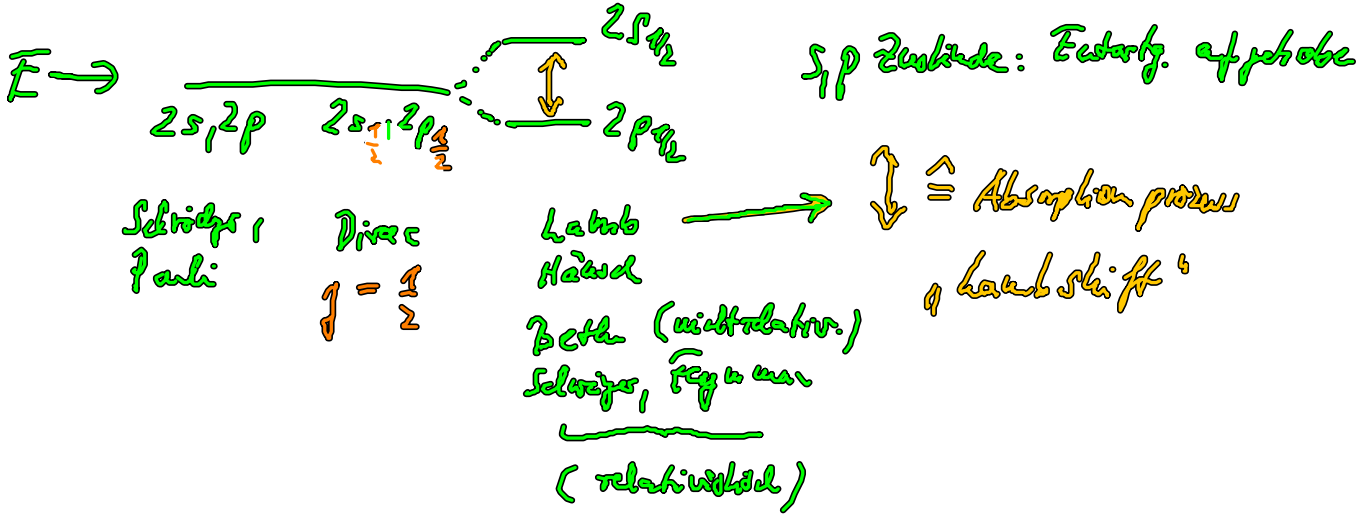 E → 2s, 2p 2s_{1/2}, 2p_{1/2} 2s_{1/2}
2p_{1/2}
s, p Zustände: Entartg. aufgehoben
Schrödger,
Pauli
Dirac
j = 1/2
Lamb
Hänsch
Bethe (nichtrelativ.)
Schwinger, Feynman
(relativistisch)
↕ ≙ Absorption prozess
„Lambshift“